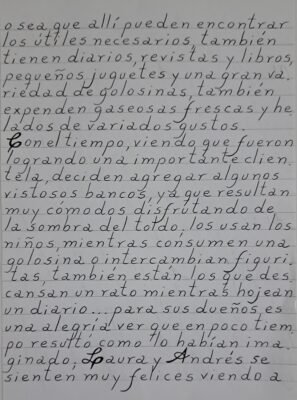 o sea que allí pueden encontrar
los útiles necesarios, también
tienen diarios, revistas y libros,
pequeños juguetes y una gran va.
riedad de golosinas, también
expenden gaseosas frescas y he
lados de variados gustos.
Con el tiempo, viendo que fueron
logrando una importante clien.
tela, deciden agregar algunos
vistosos bancos, ya que resultan
muy cómodos disfrutando de
la sombra del toldo, los usan los
niños, mientras consumen una
golosina o intercambian figuri.
tas, también están los que des.
cansan un rato mientras hojean
un diario... para sus dueños, es
una alegría ver que en poco tiem
po resultó como lo habían ima.
ginado. Laura y Andrés se
sienten muy felices viendo a